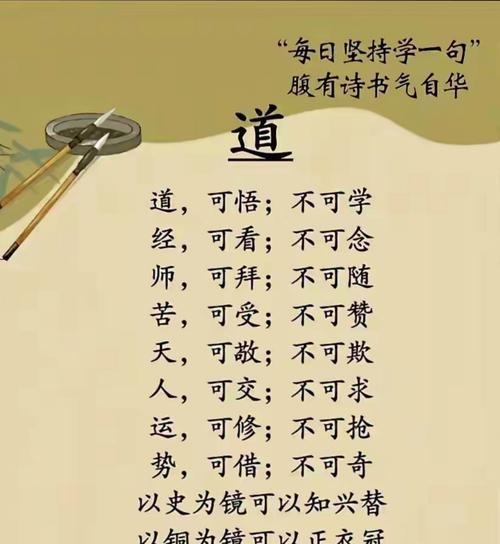 “每日坚持学一句”
腹有诗书气自华
道
道，可悟；不可学
经，可看；不可念
师，可拜；不可随
苦，可受；不可赞
天，可敬；不可欺
人，可交；不可求
运，可修；不可抢
势，可借；不可奇
以史为镜可以知兴替
以铜为镜可以正衣冠